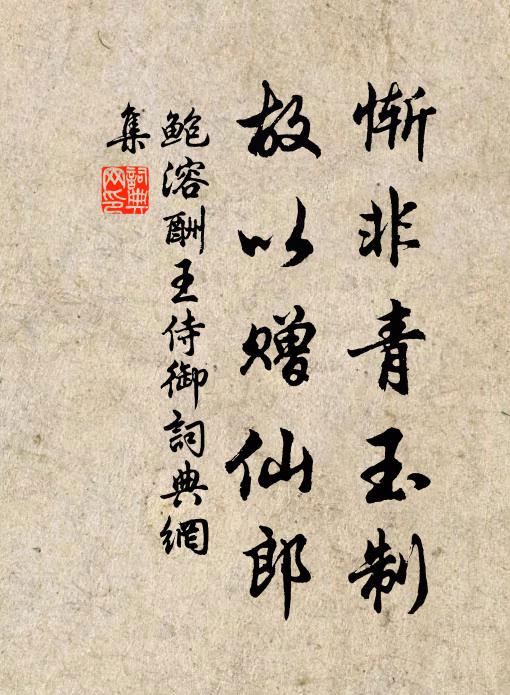 惭非青玉制
故以赠仙郎
鲍溶酬王侍御詞典網
集
詞典
网印